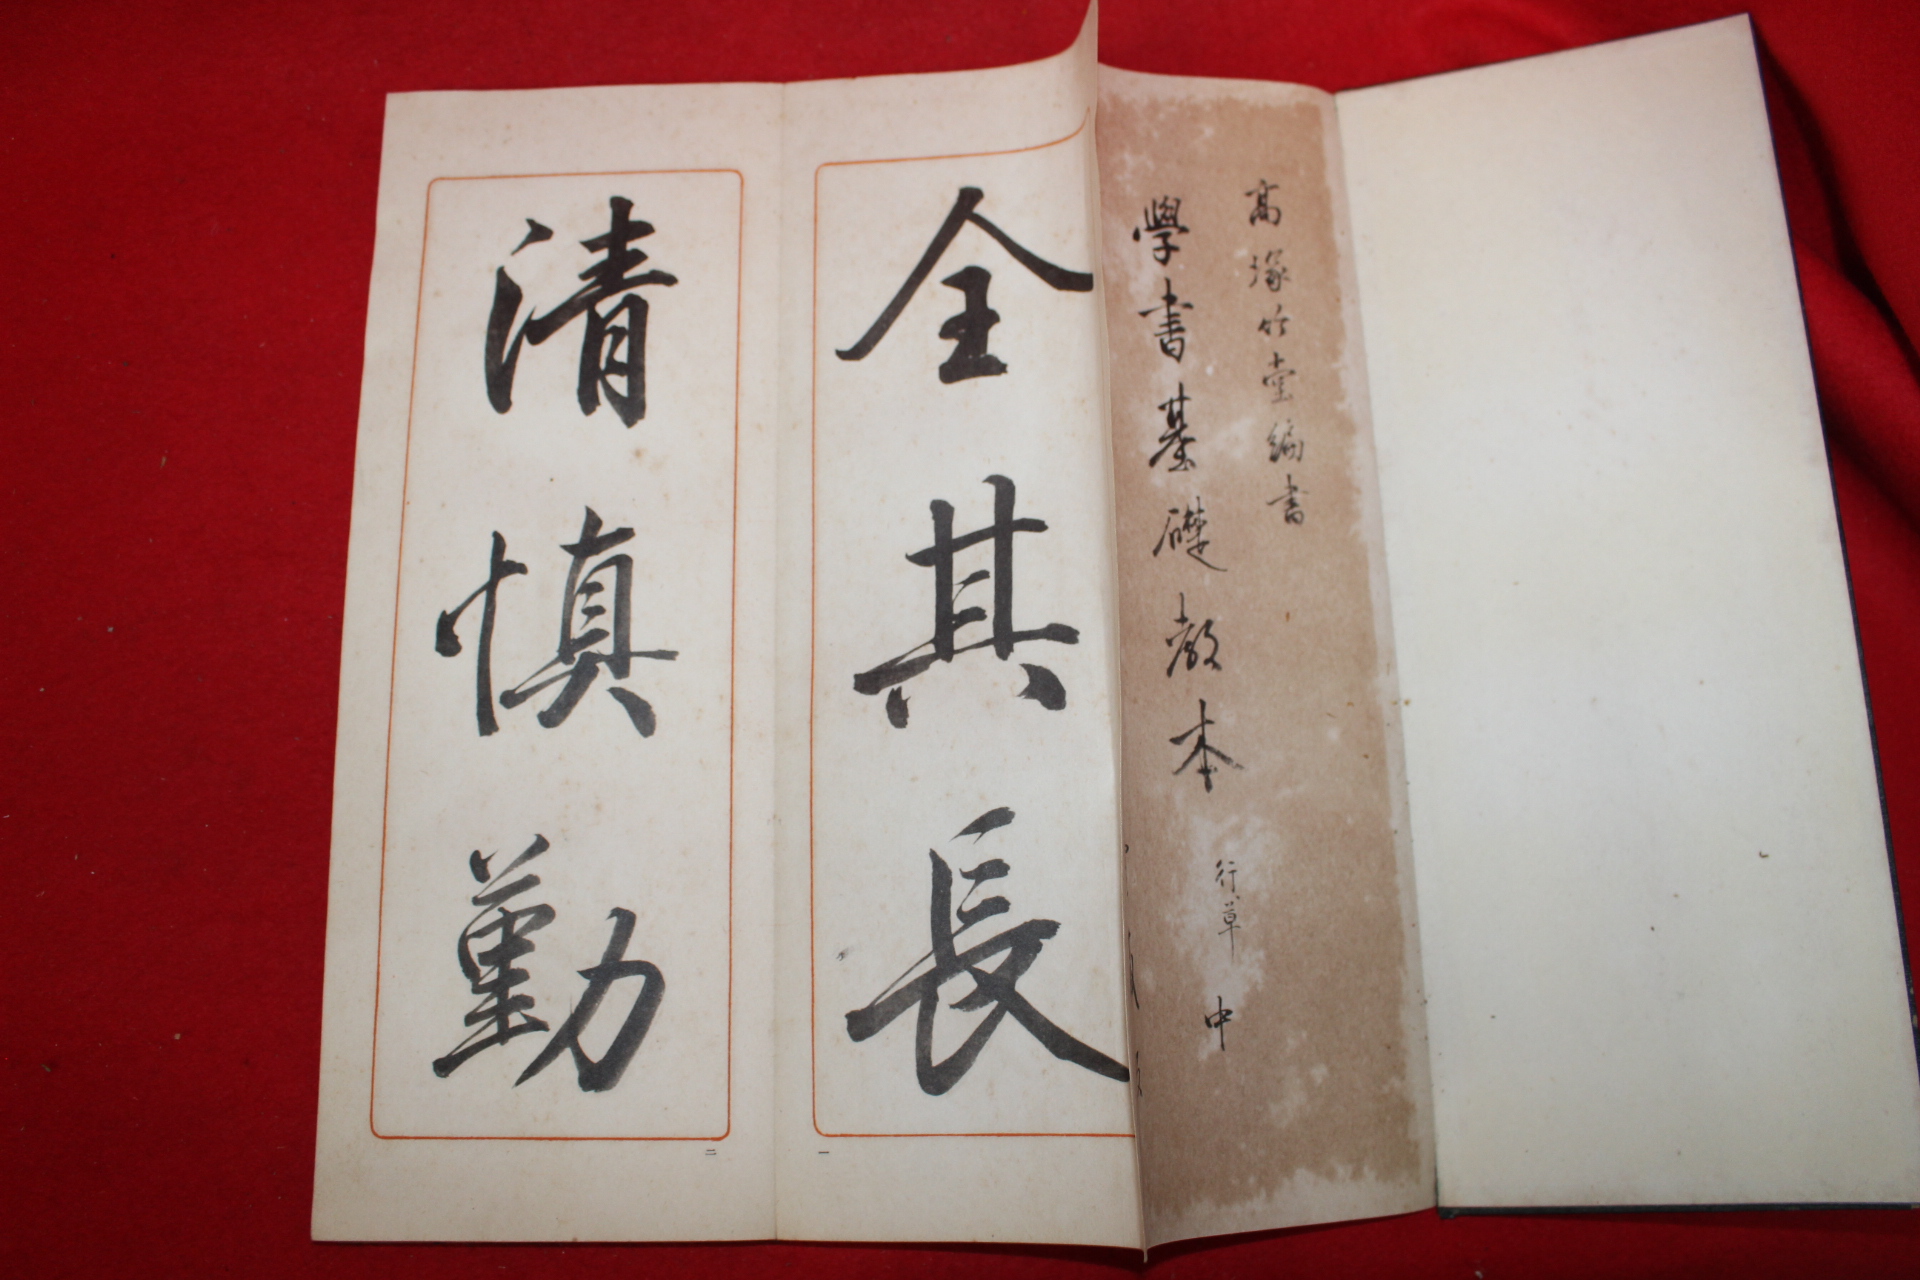 高塚竹堂編書
學書基礎教本
行草
中
全其長
一
清慎勤
二